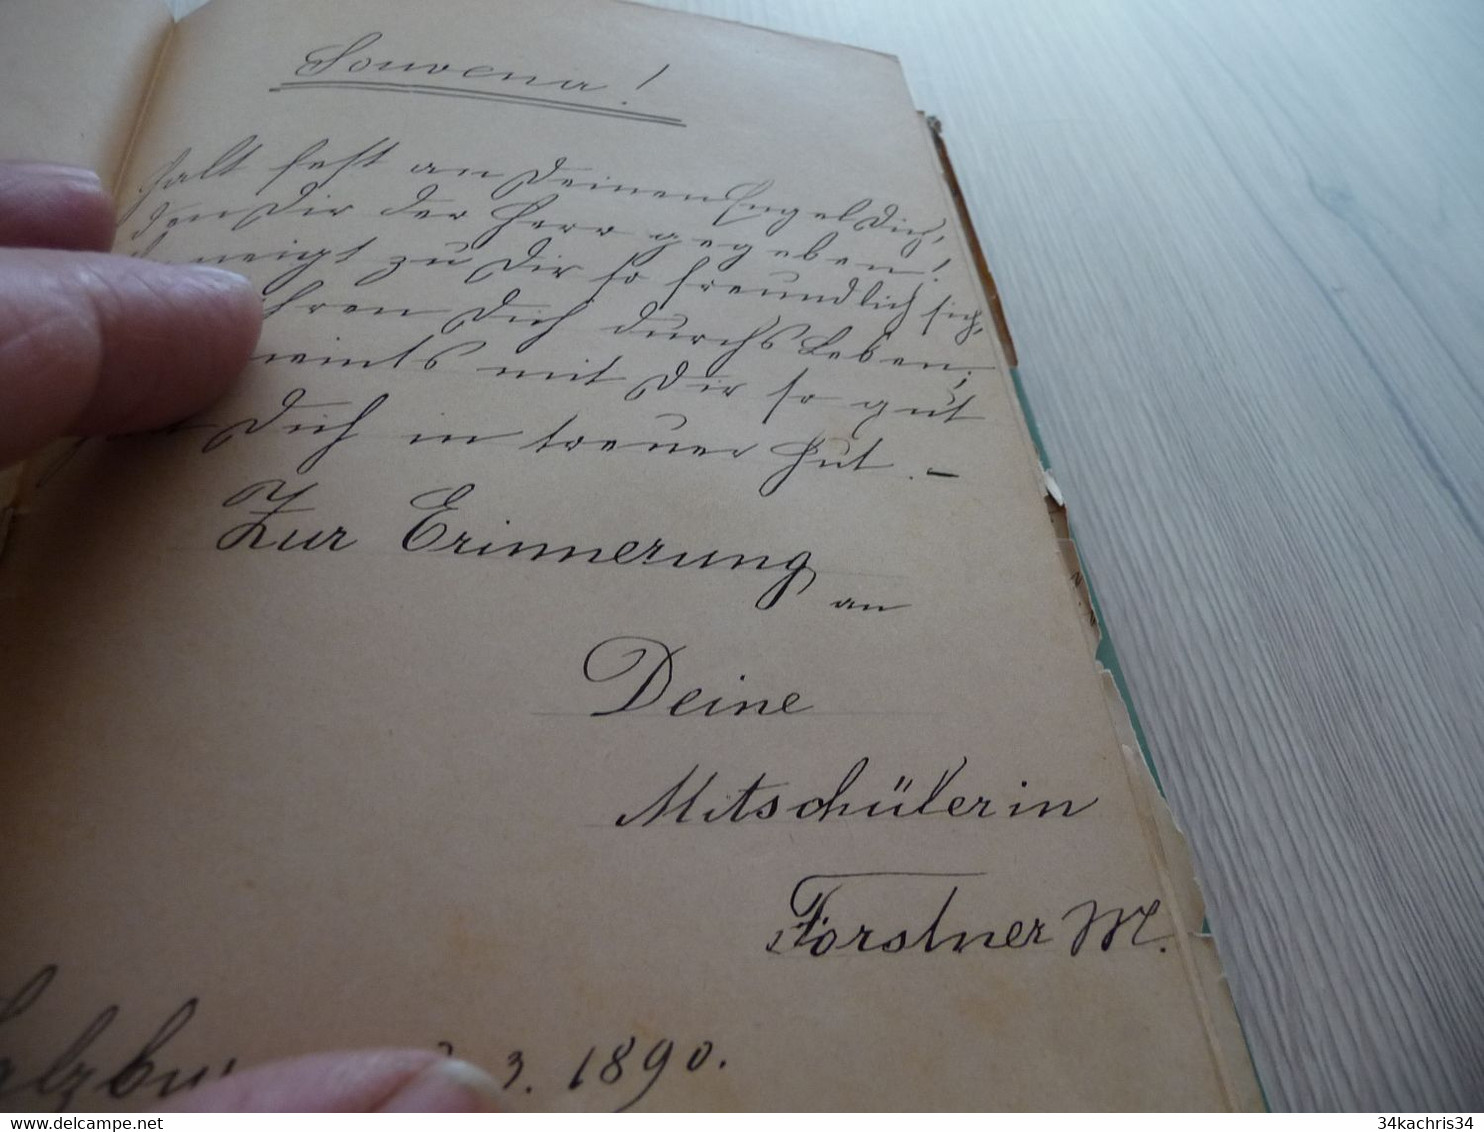 Souvena!
Halt fest an Deinen Engel Dich,
den Dir der Herr gegeben!
neigt zu Dir so freundlich sich,
Dich durchs Leben;
meints mit Dir so gut
Dich in treuer Hut. –
Zur Erinnerung
an
Deine
Mitschülerin
Forstner M.
3. 1890.
34kachris34